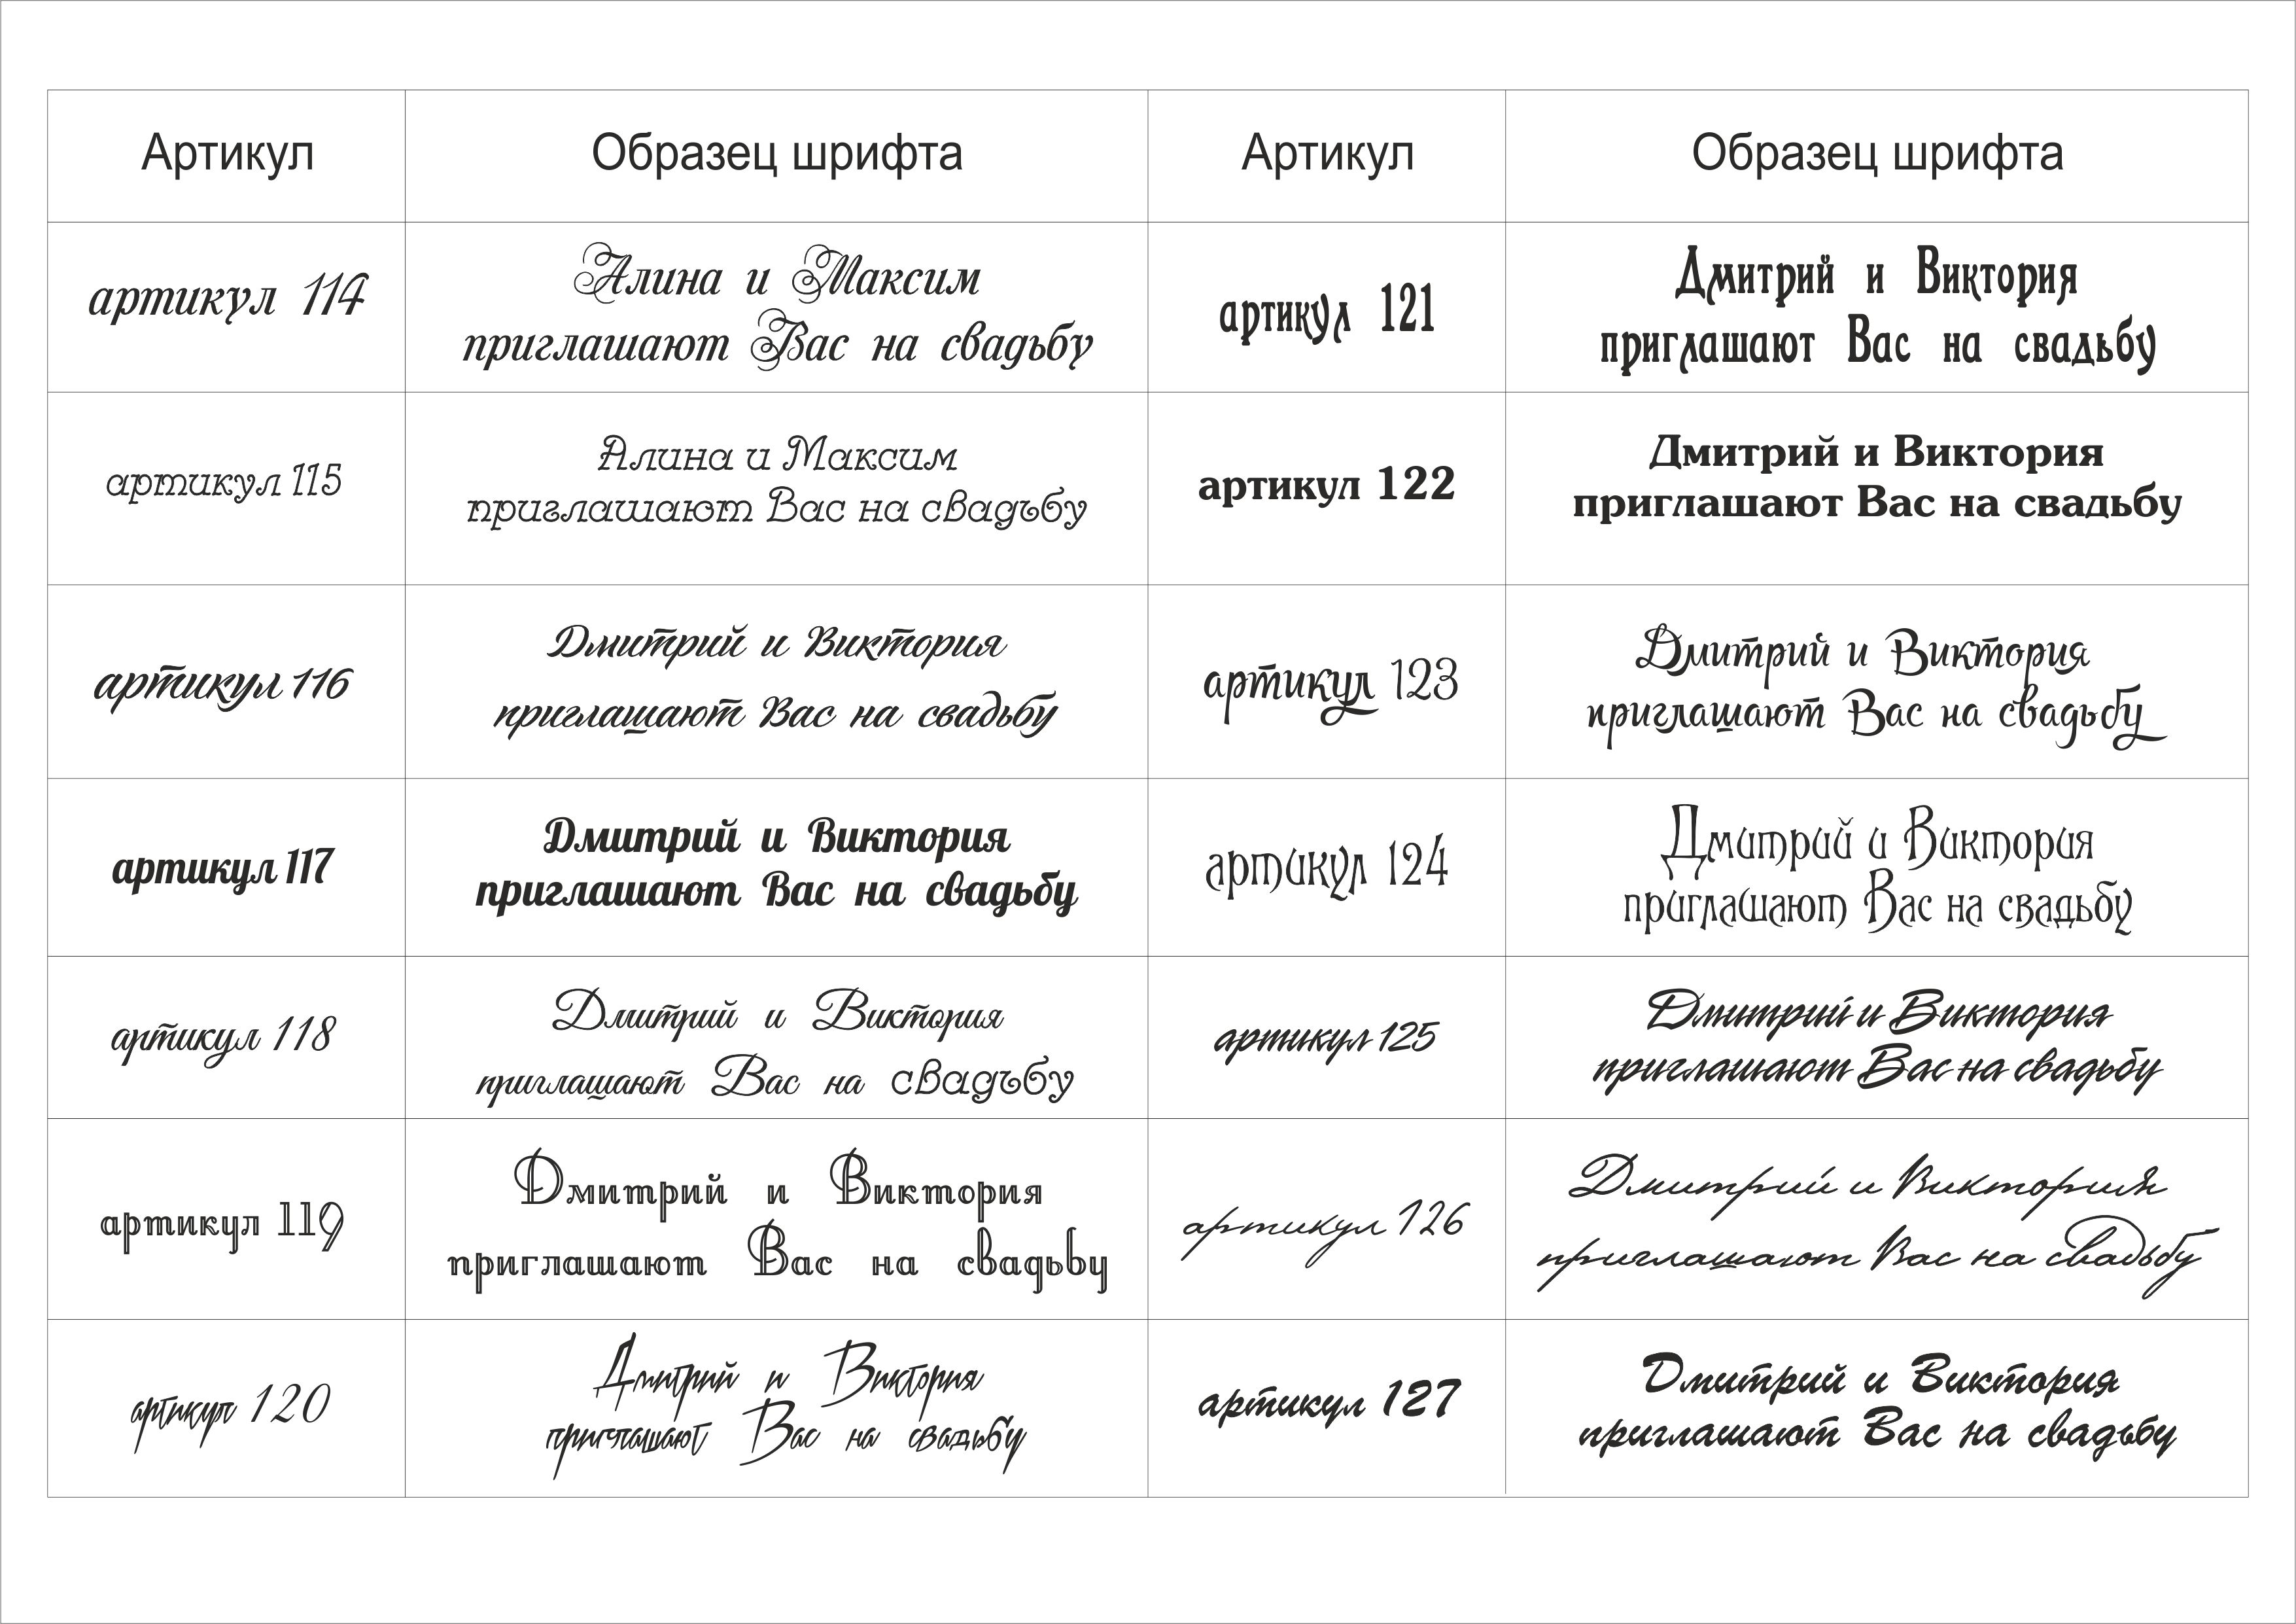 Артикул
Образец шрифта
Артикул
Образец шрифта
артикул 114
Алина и Максим
приглашают Вас на свадьбу
артикул 121
Дмитрий и Виктория
приглашают Вас на свадьбу
артикул 115
Алина и Максим
приглашают Вас на свадьбу
артикул 122
Дмитрий и Виктория
приглашают Вас на свадьбу
артикул 116
Дмитрий и Виктория
приглашают Вас на свадьбу
артикул 123
Дмитрий и Виктория
приглашают Вас на свадьбу
артикул 117
Дмитрий и Виктория
приглашают Вас на свадьбу
артикул 124
Дмитрий и Виктория
приглашают Вас на свадьбу
артикул 118
Дмитрий и Виктория
приглашают Вас на свадьбу
артикул 125
Дмитрий и Виктория
приглашают Вас на свадьбу
артикул 119
Дмитрий и Виктория
приглашают Вас на свадьбу
артикул 126
Дмитрий и Виктория
приглашают Вас на свадьбу
артикул 120
Дмитрий и Виктория
приглашают Вас на свадьбу
артикул 127
Дмитрий и Виктория
приглашают Вас на свадьбу